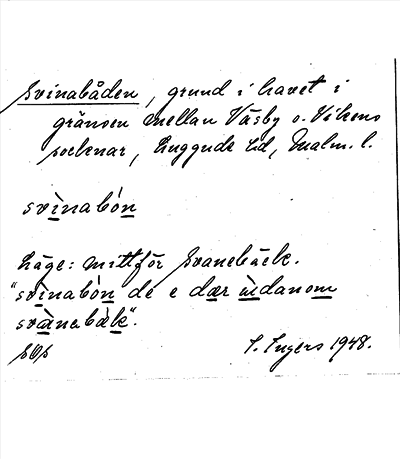 Svinabåden, grund i havet i
gränsen mellan Väsby o. Vikens
socknar, Luggude hd, Malm. l.
svìnabón
Läge: mittför Svanebäck.
"svìnabón de e dær ùdanom
svànebàk".
I. Ingers 1948.